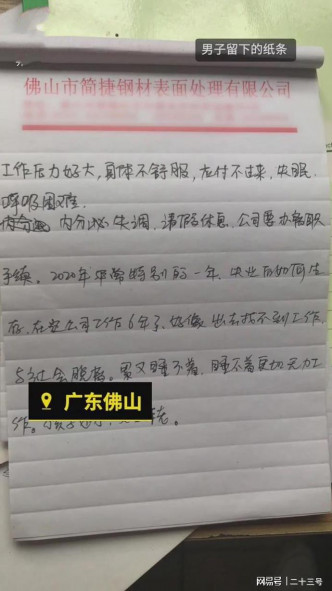 男子留下的纸条
佛山市简捷钢材表面处理有限公司
工作压力好大,身体不舒服,应付不过来,失眠
呼吸困难.
内分泌失调.请假休息.公司要办离职
手续。2020年非常特别的一年,失业后如何生
存.在这公司工作6年了,好像出去找不到工作,
与社会脱轨。累又睡不着,睡不着更切无力工
作。
广东佛山
网易号 | 二十三号